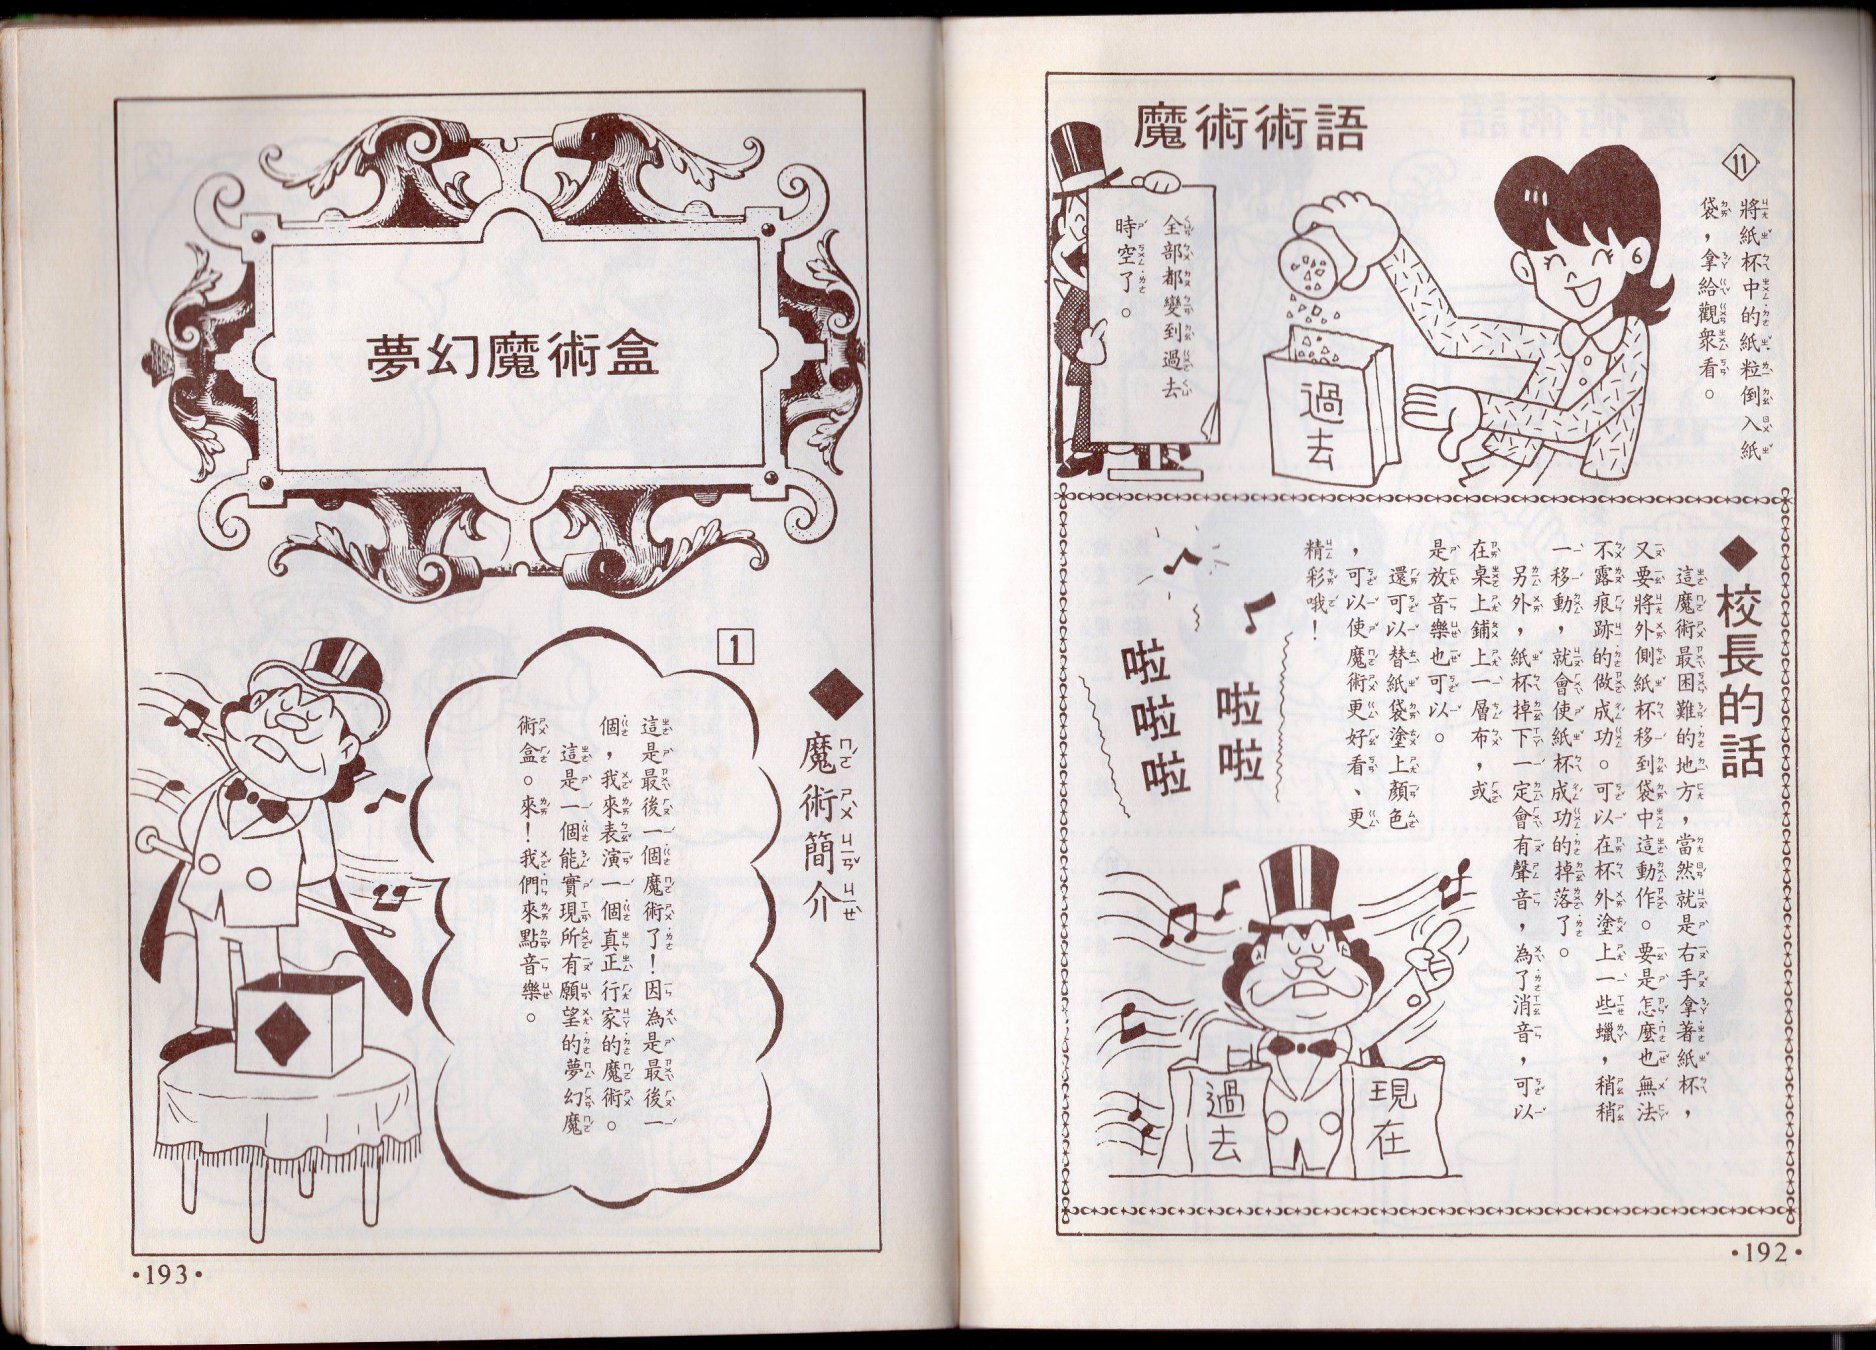 魔術術語
⑪
將紙杯中的紙粒倒入紙
袋，拿給觀眾看。
過去
全部都變到過去
時空了。
◆校長的話
這魔術最困難的地方，當然就是右手拿著紙杯，
又要將外側紙杯移到袋中這動作。要是怎麼也無法
不露痕跡的做成功。可以在杯外塗上一些蠟，稍稍
一移動，就會使紙杯成功的掉落了。
另外，紙杯掉下一定會有聲音，為了消音，可以
在桌上鋪上一層布，或
是放音樂也可以。
還可以替紙袋塗上顏色
，可以使魔術更好看、更
精彩哦！
啦啦
啦啦啦
現在
過去
•192•
夢幻魔術盒
◆魔術簡介
1
這是最後一個魔術了！因為是最後一
個，我來表演一個真正行家的魔術。
這是一個能實現所有願望的夢幻魔
術盒。來！我們來點音樂。
•193•